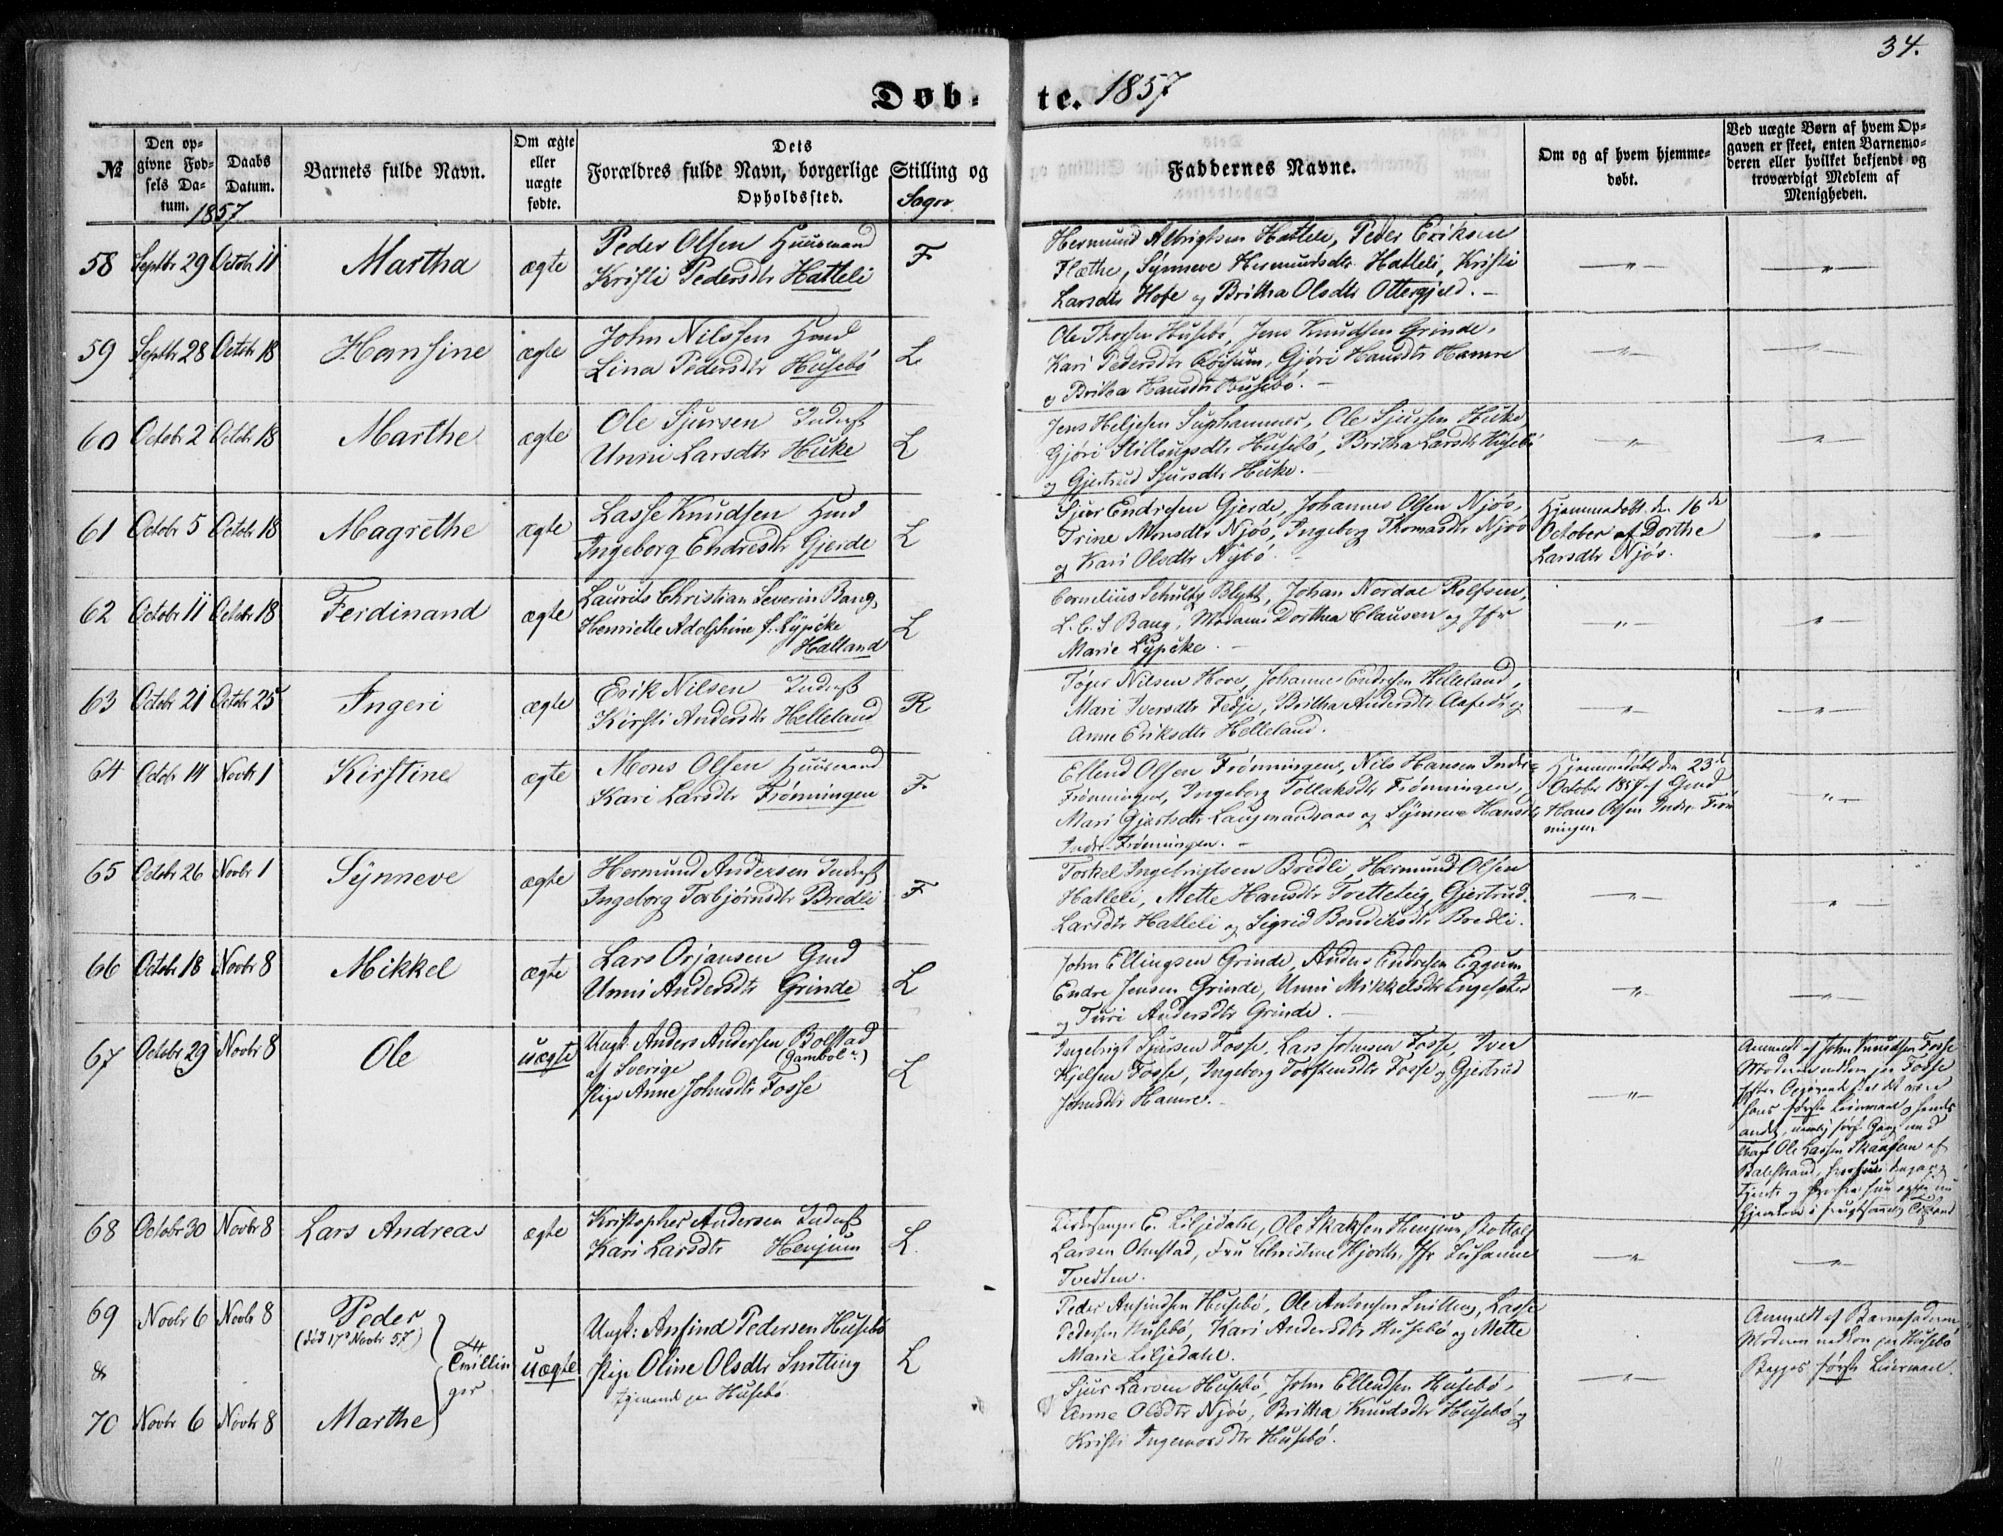 34.
Døb-
te. 1857
№
Den op-
givne Fød-
sels Da-
tum.
1857.
Daabs
Datum.
Barnets fulde Navn.
Om ægte
eller
uægte
fødte.
Dets
Forældres fulde Navn, borgerlige Stilling og
Opholdssted.
Sogn
Faddernes Navne.
Om og af hvem hjemme-
døbt.
Ved uægte Børn af hvem Op-
gaven er skeet, enten Barnemo-
deren eller hvilket bekjendt og
troværdigt Medlem af
Menigheden.
58 Septbr 29 Octobr 11 Martha ægte
Peder Olsen Huusmand
Kristi Pedersdtr Hatleli F
Hermund Albrigtsen Hatleli, Peder Eriksen
Flæthe, Synneve Hermundsdtr Hatleli, Kristi
Larsdtr Hofe og Britha Olsdtr Ottergjeld.
59 Septbr 28 Octobr 18 Hansine ægte
John Nilssen Hmd
Lina Pedersdtr Husebö L
Ole Husebö, Jens Knudsen Grinde,
Kari Pedersdtr, Gjöri Hansdtr Hamre
og Britha Hansdtr Husebö.
60 Octobr 2 Octobr 18 Marthe ægte
Ole Sjursen Inderst
Unni Larsdtr Huke L
Jens Heljesen Suphammer, Ole Sjursen Huke,
Gjöri Stillougsdtr Husebö, Britha Larsdtr Husebö
og Gjertrud Sjursdtr Huke.
61 Octobr 5 Octobr 18 Magrethe ægte
Lasse Knudsen Hmd
Ingeborg Endresdtr Gjerde L
Sjur Endresen Gjerde, Johannes Olsen Njös,
Trine Monsdtr Njös, Ingeborg Thomasdtr Njös
og Kari Olsdtr Nybö.
Hjemmedöbt den 16de
October af Dorthe
Larsdtr Njös.
62 Octobr 11 Octobr 18 Ferdinand ægte
Laurits Christian Severin Bang,
Henriette Adolphine f. Lypcke
Hatland L
Cornelius Schultz Blytt, Johan Nordal Rolfsen,
L. C. S Bang, Madam Dorthea Clausen og Jfr
Marie Lypcke.
63 Octobr 21 Octobr 25 Ingeri ægte
Erik Nilsen Inderst
Kirsti Andersdtr Helleland R
Töger Nilsen Hove, Johannes Endresen Helleland,
Mari Iversdtr Fedje, Britha Andersdtr Aafedt og
Anne Eriksdtr Helleland.
64 Octobr 14 Novbr 1 Kirstine ægte
Mons Olsen Huusmand
Kari Larsdtr Frönningen F
Ellend Olsen Frönningen, Nils Hansen Indre
Frönningen, Ingeborg Tollaksdtr Frönningen,
Mari Gjertsdtr og Synneve Hansdtr
Indre Frönningen.
Hjemmedöbt den 23de
October 1857 af Gmd
Hans Olsen Indre Frön
ningen
65 Octobr 26 Novbr 1 Synneve ægte
Hermund Andersen Inderst
Ingeborg Torbjörnsdtr Bredli F
Torkel Ingebrigtsen Bredli, Hermund Olsen
Hatleli, Mette Hansdtr Tvetteteig, Gjertrud
Larsdtr Hatleli og Sigrid Bendiksdtr Bredli.
66 Octobr 18 Novbr 8 Mikkel ægte
Lars Orjansen Gmd
Unni Andersdtr Grinde L
John Ellingsen Grinde, Anders Endresen Eggum
Endre Jensen Grinde, Unni Mikkelsdtr Engesæter
og Turi Andersdtr Grinde.
67 Octobr 29 Novbr 8 Ole uægte
Ungk: Anders Andersen Bolstad
(Gambol)
af Sverige
Pige Anne Johnsdtr Fosse L
Ingebrigt Sjursen Fosse, Lars Johnsen Fosse, Iver
Kjelsen Fosse, Ingeborg Torstensdtr Fosse og Gjertrud
Johnsdtr Hamre.
Anmeldt af John Knudsen Fosse
Moderen paa Fosse
Efter Opgivende skal det være
hans første Leiermaal og hendes
andet, nemlig først Gang med
Ungk Ole Larsen af
Balestrand,
68 Octobr 30 Novbr 8 Lars Andreas ægte
Kristopher Andersen Inderst
Kari Larsdtr Henjum L.
Kirkesanger E. Liljedahl, Ole Henjum,
Larsen Olmstad, Fru Christine Hjorth, Jfr Susanne
Tvedten.
69 Novbr 6 Novbr 8 Peder
(död 17de Novbr 57)
&
70 Novbr 6 Novbr 8 Marthe
Tvillin
ger
uægte
Ungk: Ansind Pedersen Husebö
Pige Oline Olsdtr Snitting
tjenende paa Husebö L
Peder Ansindsen Husebö, Ole, Lasse
Pedersen Husebö, Kari Andersdtr Husebö og Mette
Marie Liljedahl.
Sjur Larsen Husebö, John Ellendsen Husebö,
Anne Olsdtr Njös, Britha Knudsdtr Husebö og
Kristi Ingemorsdtr Husebö.
Anmeldt af Barnefaderen
Moderen paa Husebö
Begges første Leiermaal.